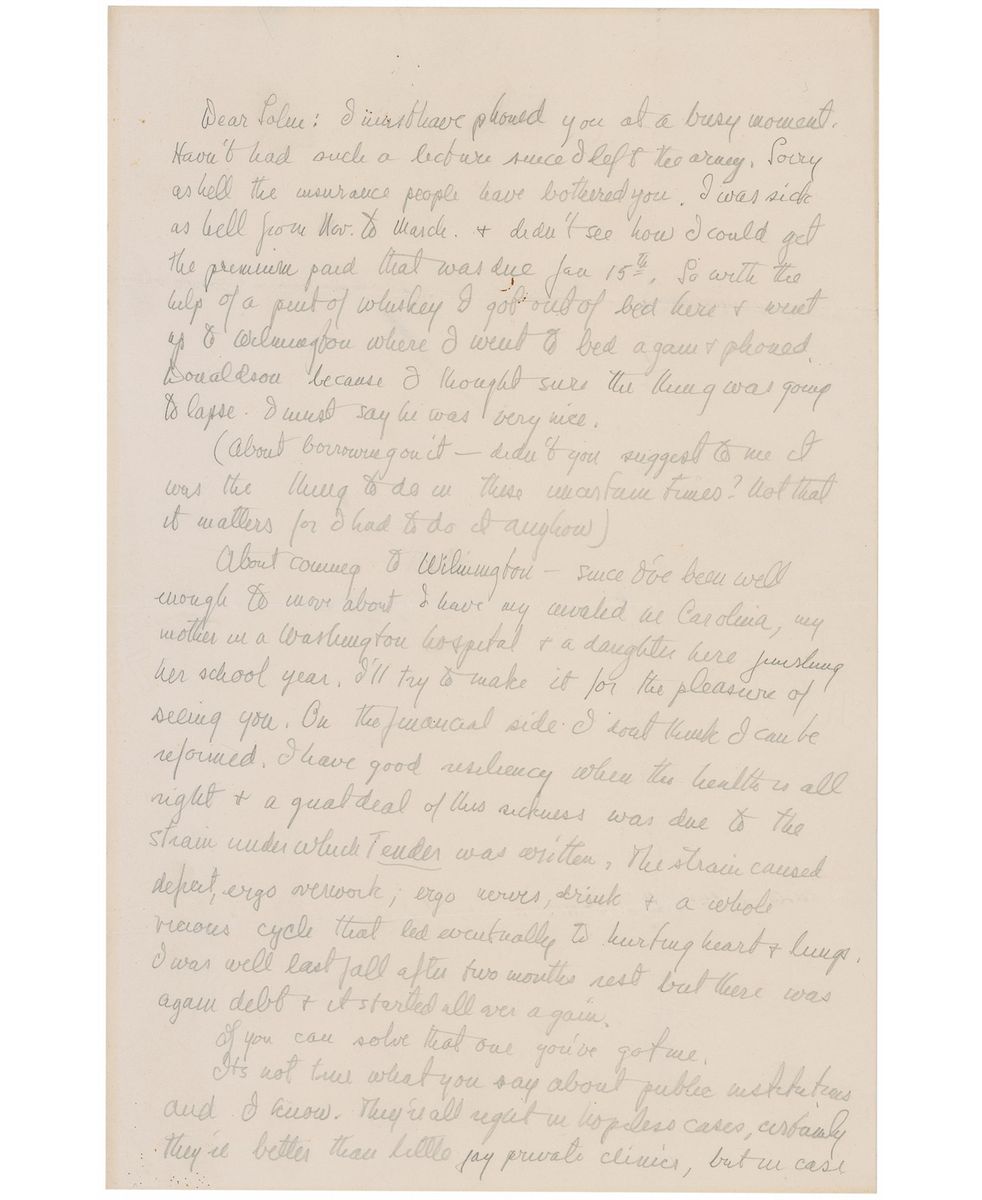 Dear John: I must have phoned you at a busy moment.
Havn't had such a lecture since I left the army. Sorry
as hell the insurance people have bothered you. I was sick
as hell from Nov. to March. + didn't see how I could get
the premium paid that was due Jan 15th. So with the
help of a pint of whiskey I got out of bed here + went
up to Wilmington where I went to bed again + phoned
Donaldson because I thought sure the thing was going
to lapse. I must say he was very nice.
(About borrowing on it — didn't you suggest to me it
was the thing to do in these uncertain times? Not that
it matters for I had to do it anyhow)
About coming to Wilmington — since I've been well
enough to move about I have my invalid in Carolina, my
mother in a Washington hospital + a daughter here finishing
her school year. I'll try to make it for the pleasure of
seeing you. On the financial side I dont think I can be
reformed. I have good resiliency when the health is all
right + a great deal of this sickness was due to the
strain under which Tender was written. The strain caused
deficit, ergo overwork; ergo nerves, drink + a whole
vicious cycle that led eventually to hurting heart + lungs.
I was well last fall after two months rest but there was
again debt + it started all over again.
If you can solve that one you've got me.
Its not true what you say about public institutions
and I know. They're all right in hopeless cases, certainly
they're better than little jay private clinics, but in case